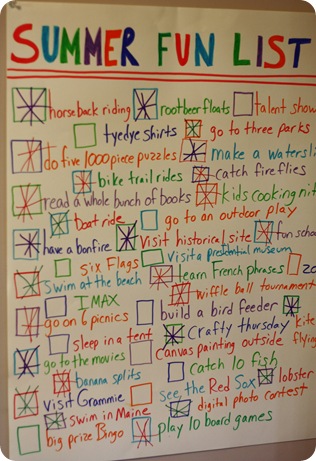 SUMMER FUN LIST
horseback riding rootbeer floats talent show
tyedye shirts go to three parks
do five 1000 piece puzzles make a watersli
bike trail rides catch fireflies
read a whole bunch of books kids cooking nit
Boat ride go to an outdoor play
have a bonfire Visit historical site fun scho
six Flags Visit a presidential museum
Swim at the beach learn French phrases zo
IMAX wiffle ball tournament
go on 6 picnics build a bird feeder kite
sleep in a tent Crafty thursday flying
go to the movies Canvas painting outside
banana splits Catch 10 fish
visit Grammie see, the Red Sox lobster
swim in Maine digital photo contest
big prize Bingo play 10 board games